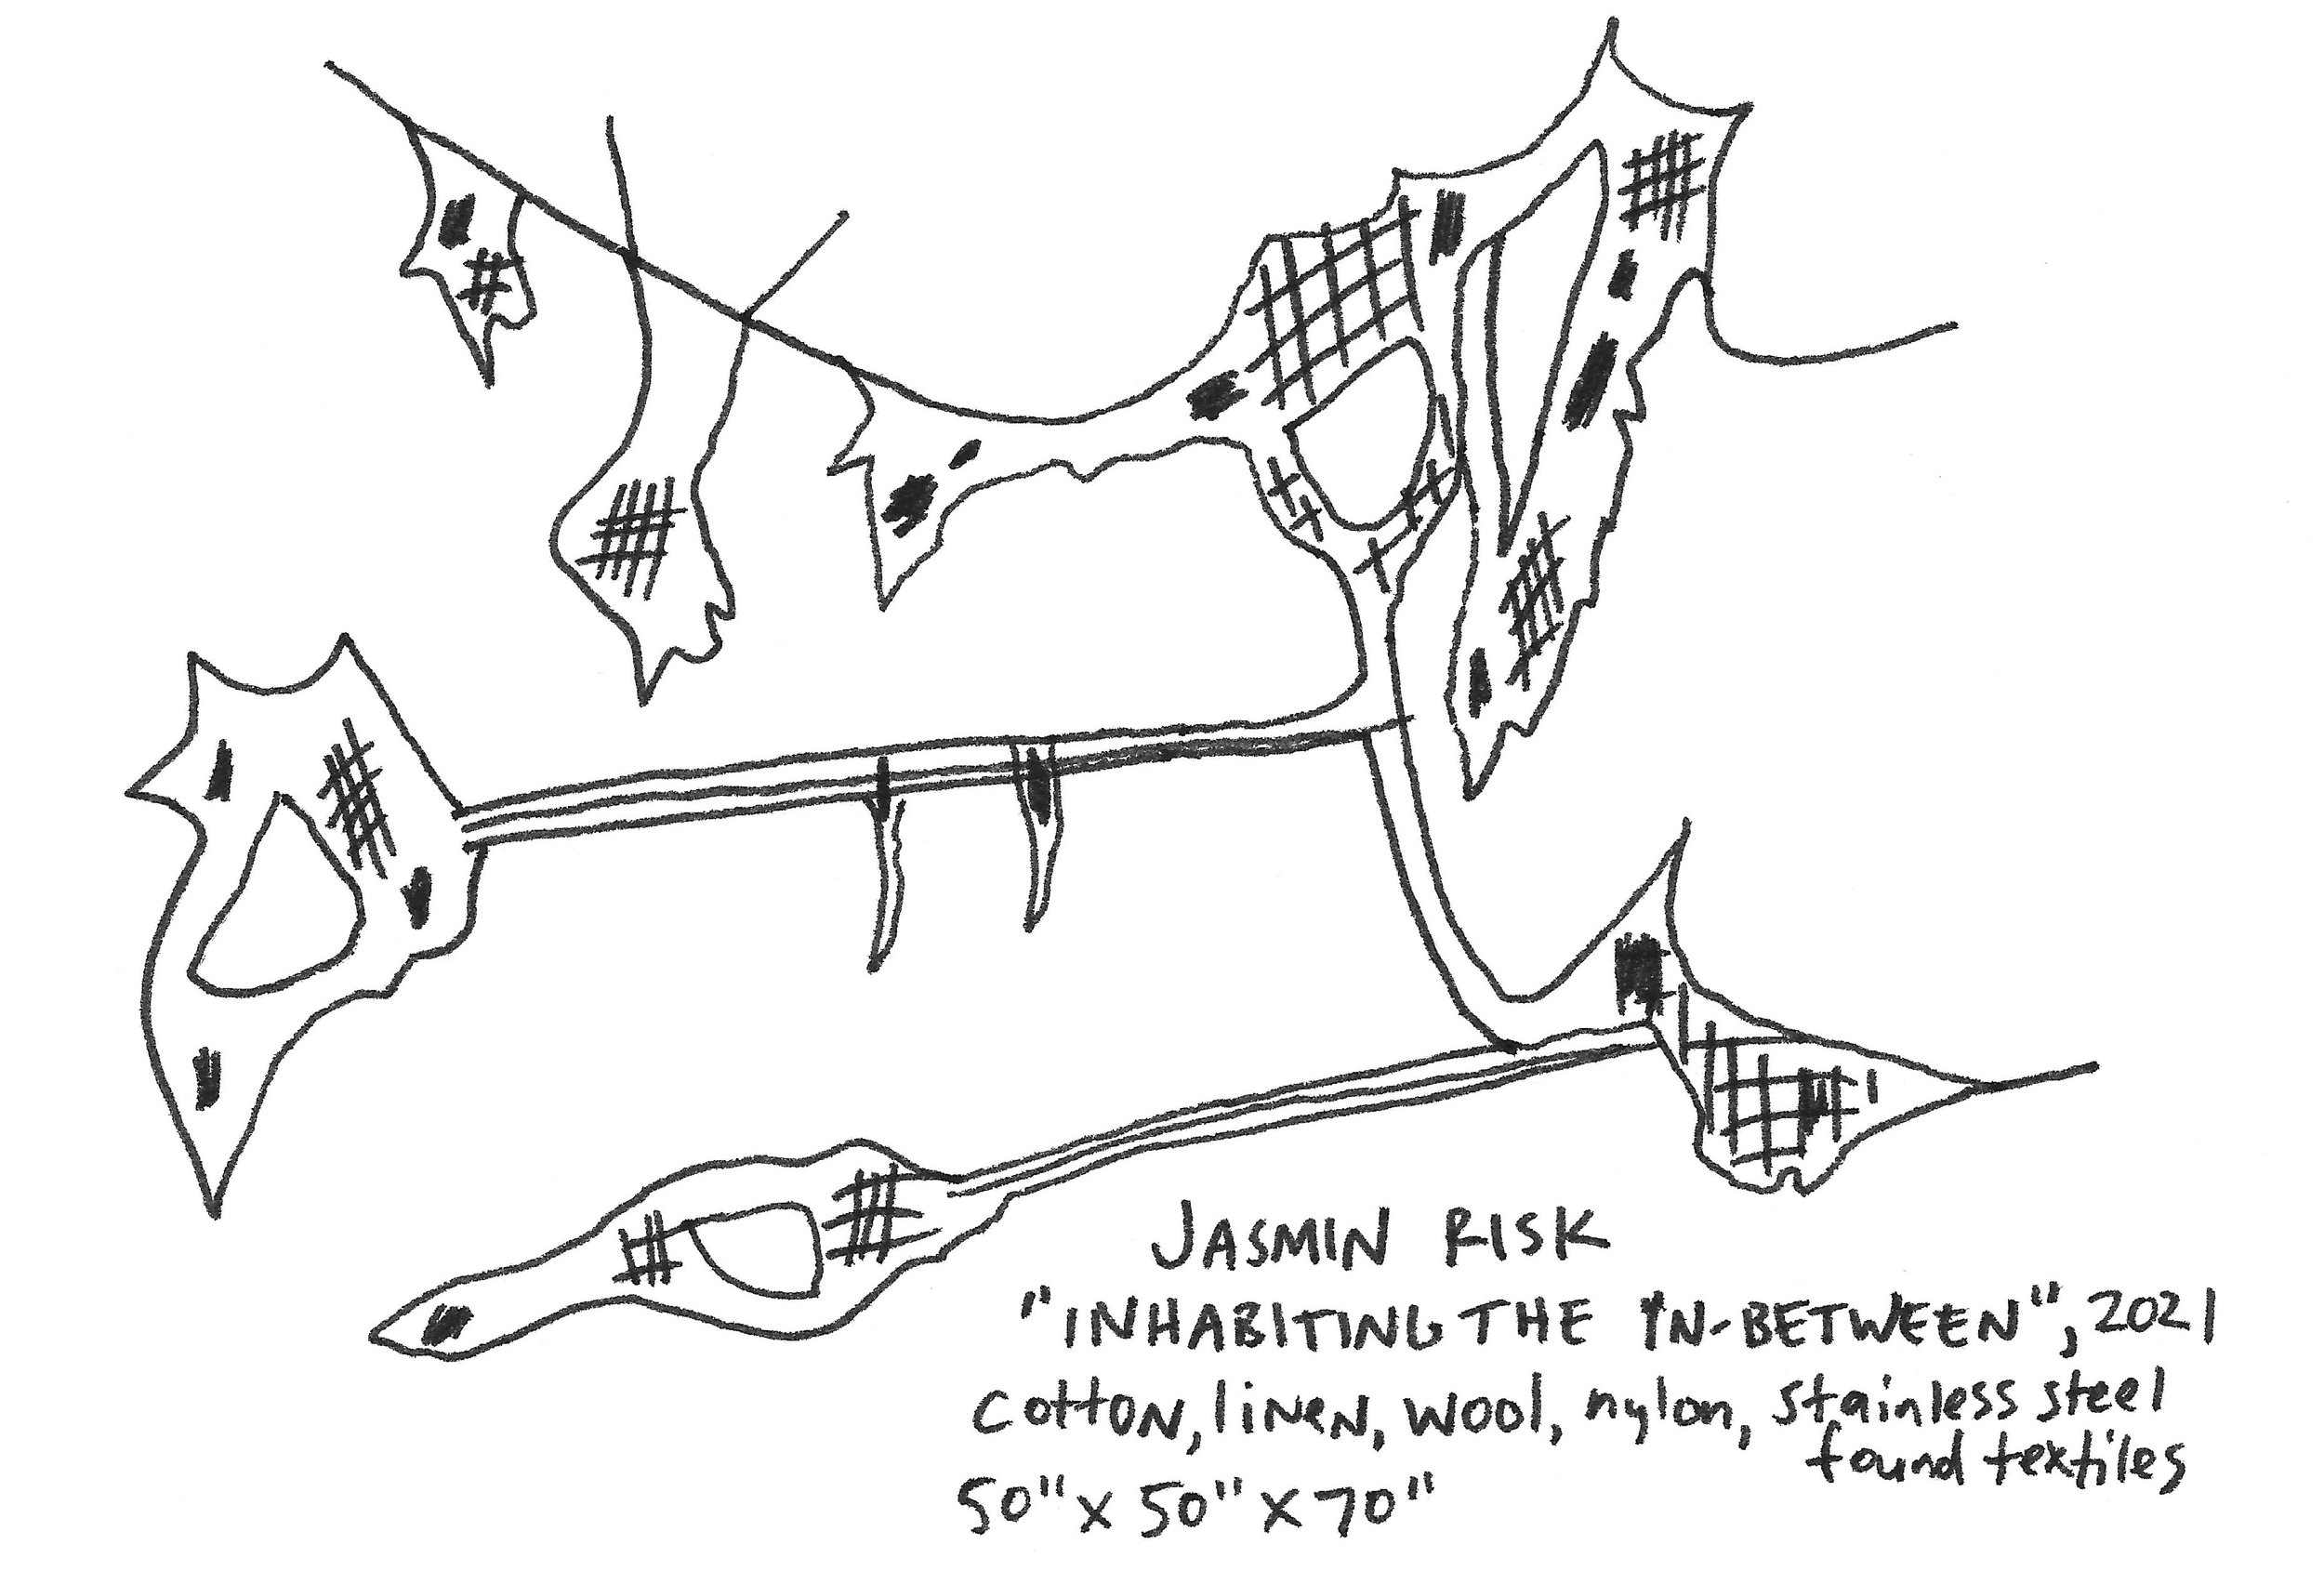 JASMIN RISK
"INHABITING THE IN-BETWEEN", 2021
cotton, linen, wool, nylon, stainless steel
found textiles
50" x 50" x 70"